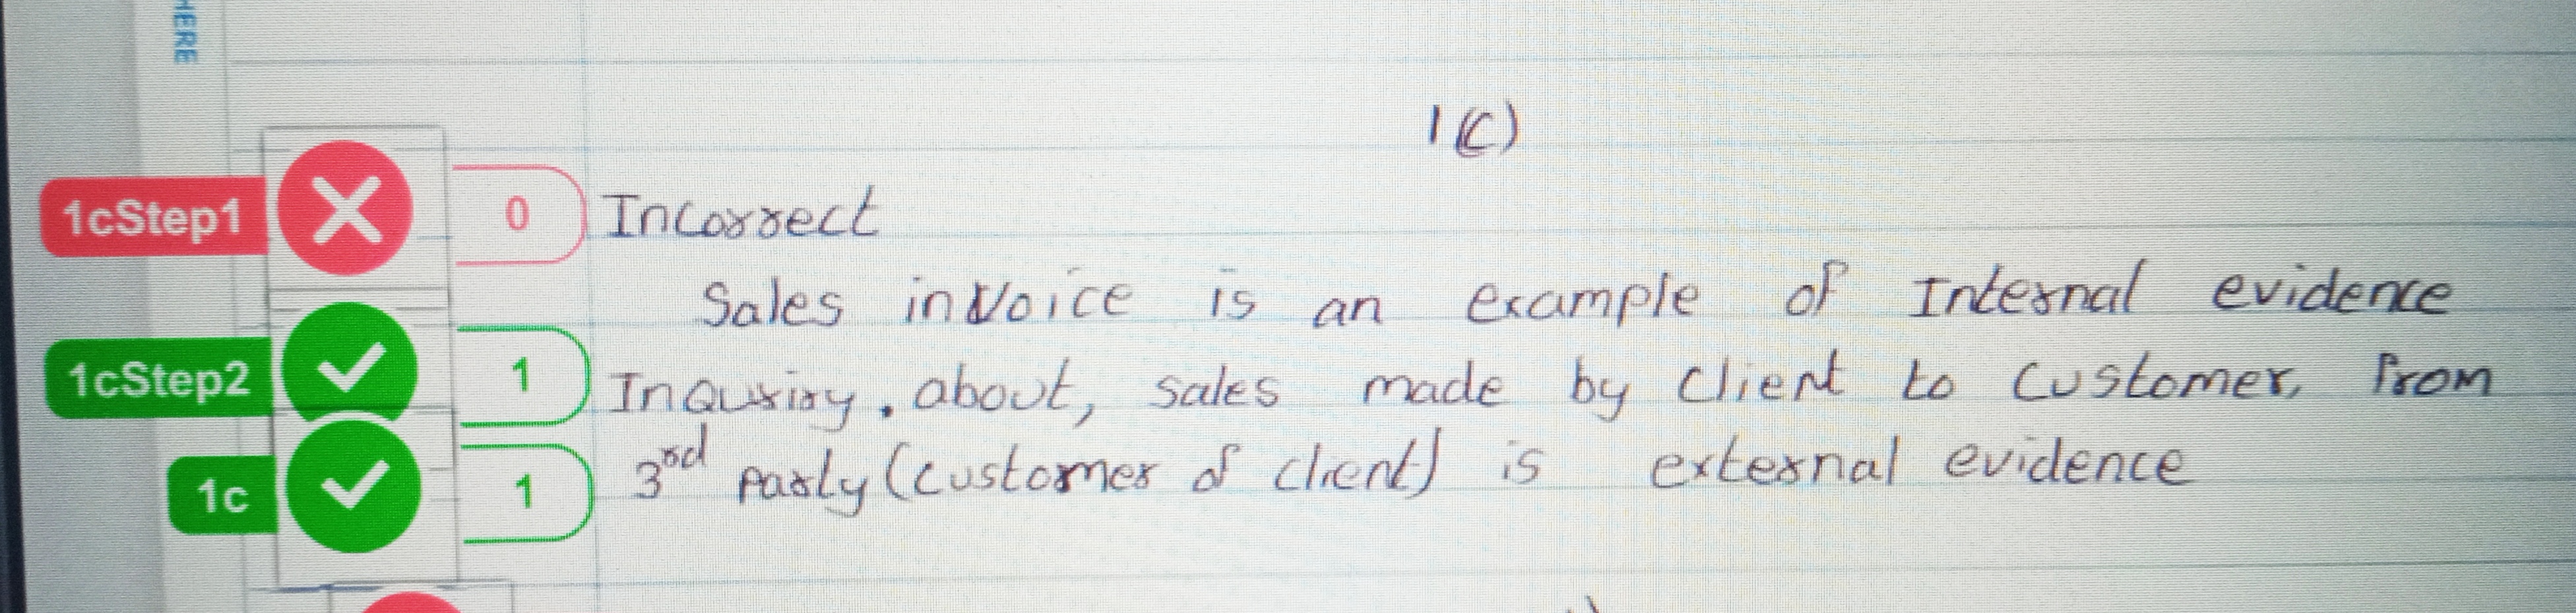 HERE
1(C)
1cStep1 0 Incorrect
Sales invoice is an example of Internal evidence
1cStep2 1 Inquiry, about, sales made by client to customer, from
1c 1 3rd party (customer of client) is external evidence